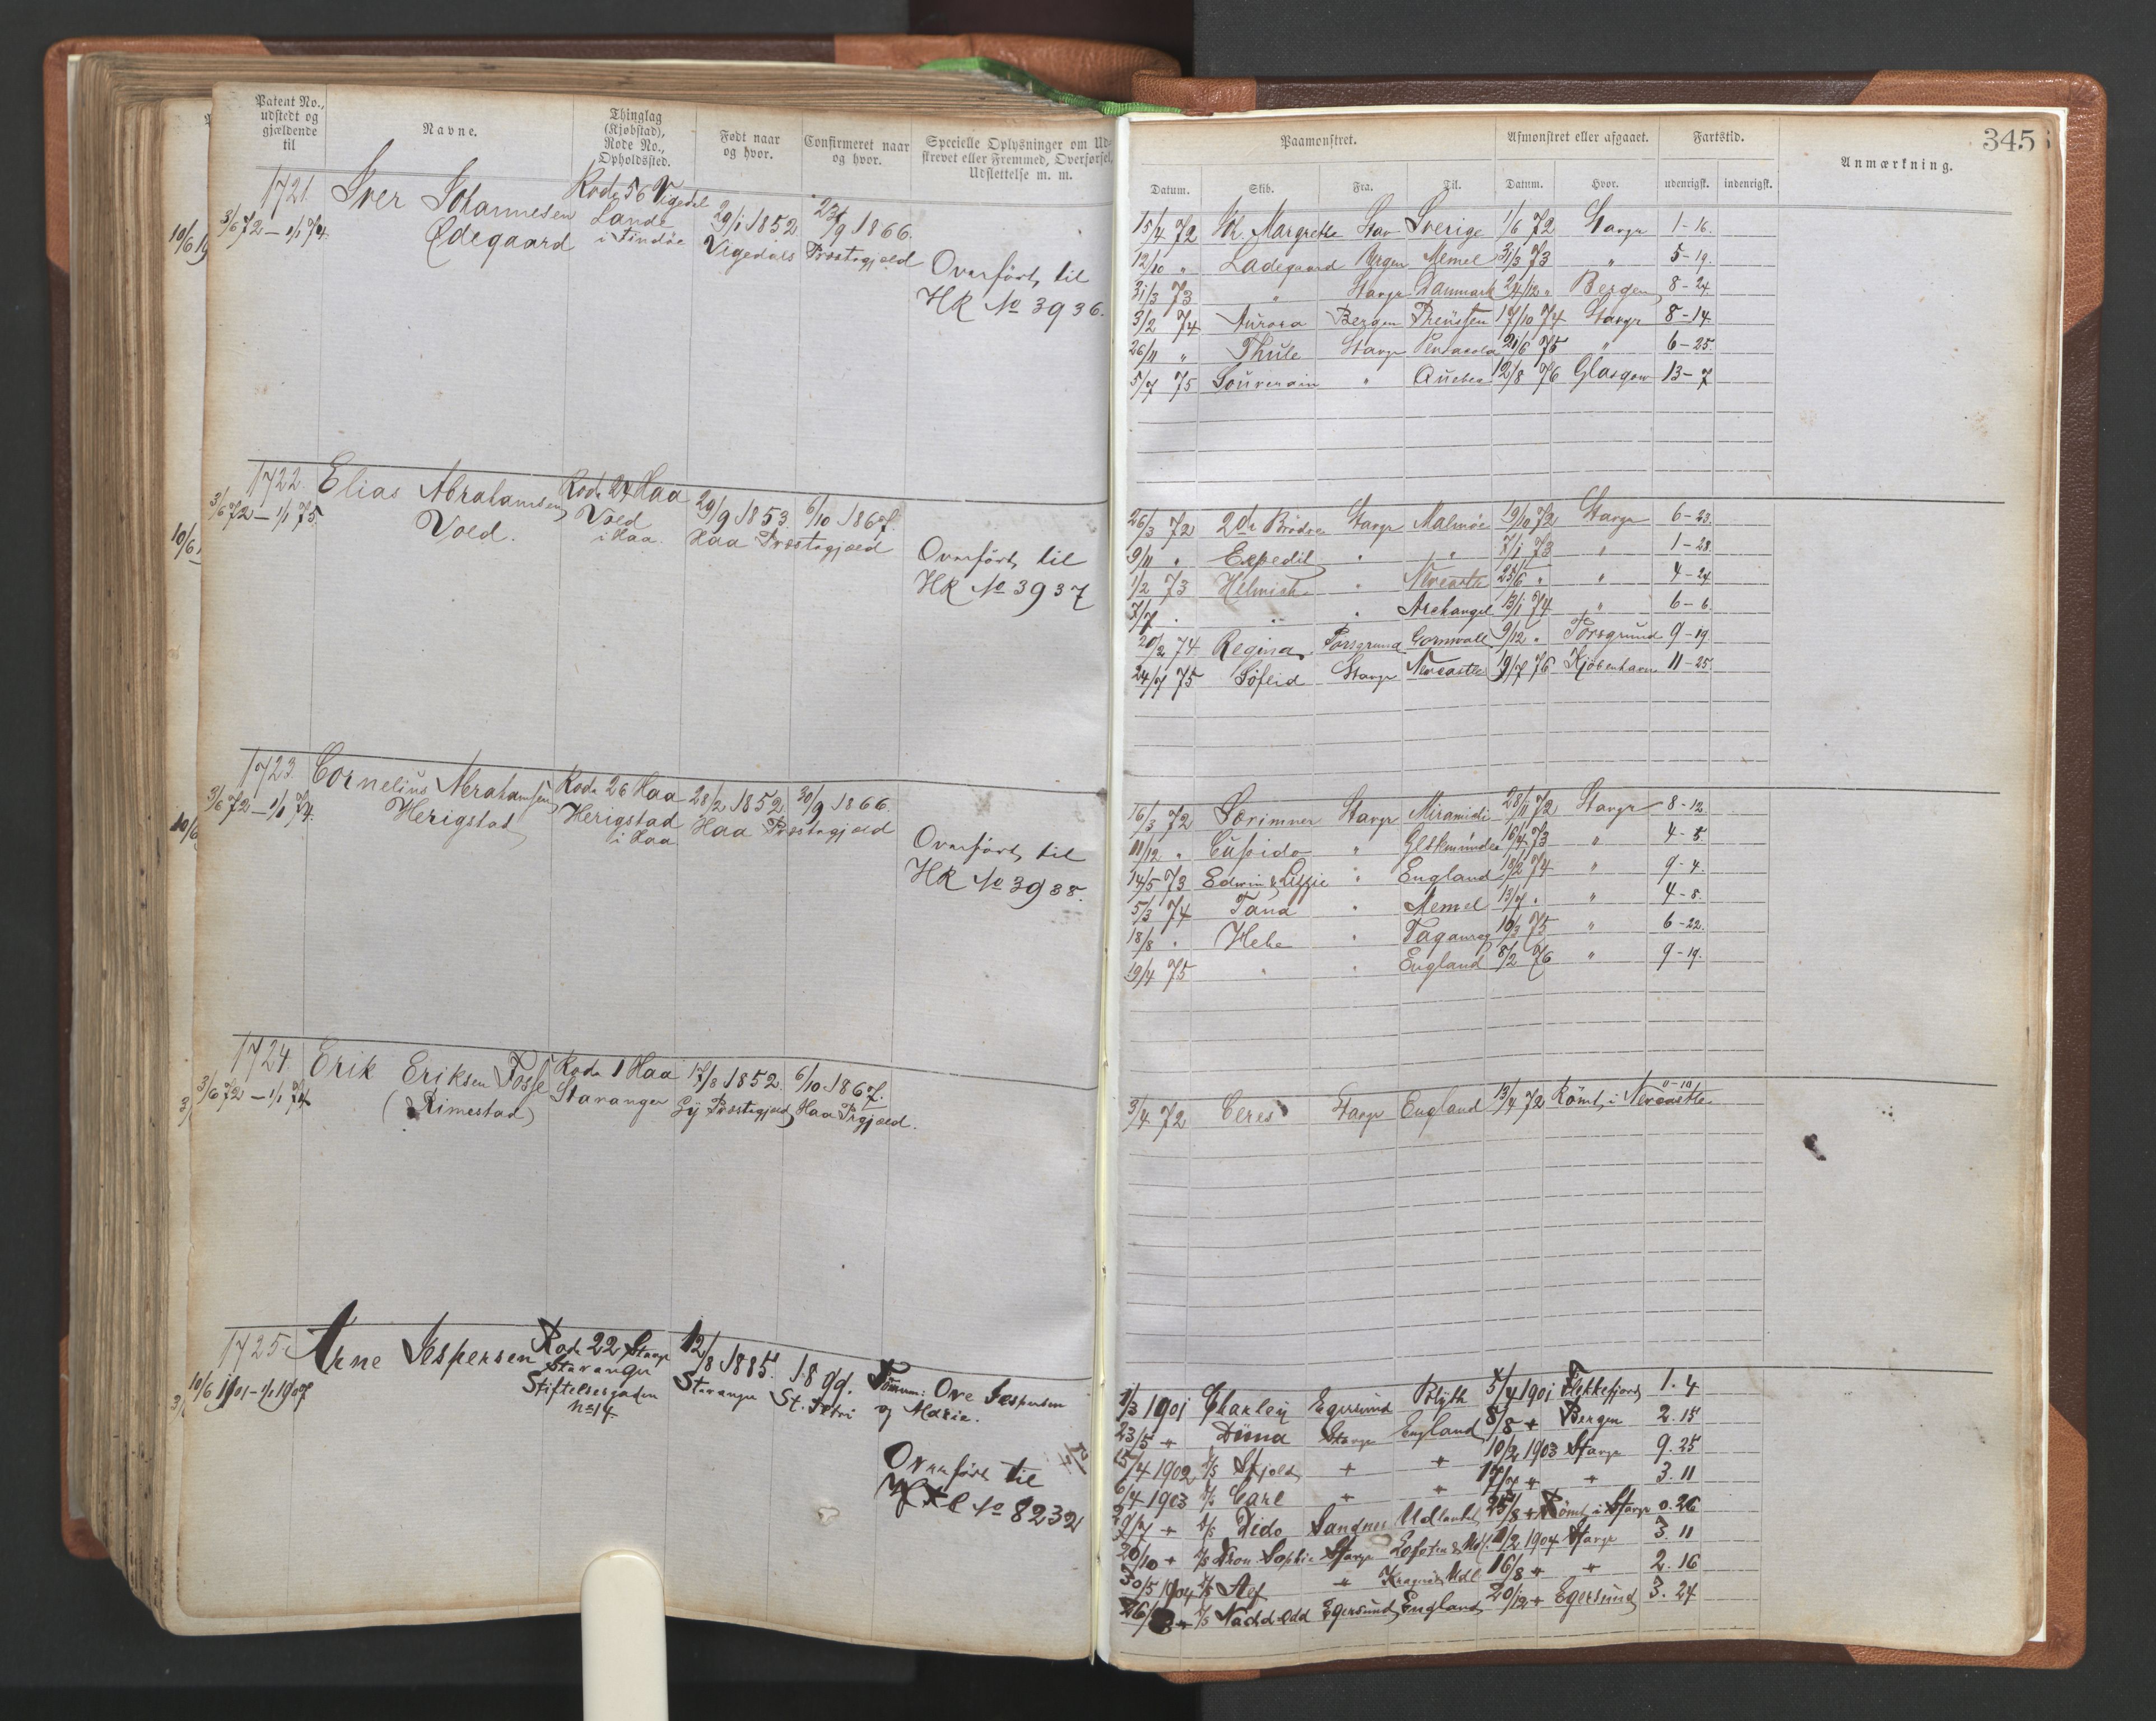 Patent No., udstedt og gjældende til
Navne.
Thinglag (Kjøbstad), Rode No., Opholdssted.
Født naar og hvor.
Confirmeret naar og hvor.
Specielle Oplysninger om Udskrevet eller Fremmed, Overførsel, Udslettelse m. m.
1721.
3/6 72 – 1/1 74.
Iver Johannesen
Ødegaard
Rode 56 Vigedal
Lande
i Findöe
29/1 1852
Vigedals
23/9 1866.
Præstegjæld
Overført til
HR No 3936.
1722.
3/6 72 – 1/1 75.
Elias Abrahamsen
Vold.
Rode 24 Haa
Vold
i Haa.
29/9 1853.
Haa
6/10 1867.
Præstegjæld
Overført til
HR No 3937
1723.
3/6 72 – 1/1 74.
Cornelius Abrahamsen
Herigstad
Rode 26 Haa
Herigstad
i Haa
28/2 1852
Haa
30/9 1866.
Præstegjæld
Overført til
HR No 3938.
1724
3/6 72 – 1/1 74
Erik Eriksen Fosse
(Rimestad)
Rode 1 Haa
Stavanger
17/8 1852.
Gj Præstegjæld
6/10 1867.
Haa Prgjæld.
1725
10/6 1901 – 1/1 1907
Arne Jespersen
Rode 22 Stavgr
Stavanger
Stiftelsesgaden
No 14
12/8 1885.
Stavanger
1899.
St. Petri
Ove Jespersen
og Marie.
Overført til
No 8232
345
Paamønstret.
Afmønstret eller afgaaet.
Fartstid.
Anmærkning.
Datum. Skib. Fra. Til. Datum. Hvor. udenrigsk. indenrigsk.
15/4 72 Margrethe Stav Sverige 1/6 72 Stavgr 1-16.
12/10 " Ladegaard Bergen Memel 31/3 73 " 5-19.
31/3 73 " Stavgr Danmark 24/12 " Bergen 8-24
3/2 74 Aurora Bergen Preussen 17/10 74 Stavgr 8-14
26/11 " Thule Stavgr Pensacola 21/6 75 " 6-25.
5/7 75 Souverain " Quebec 12/8 76 Glasgow 13-7
26/3 72 2de Brödre Stavgr Malmöe 19/10 72 Stavgr 6-23.
9/11 " Expedit " " 7/1 73 " 1-28.
1/2 73 " Newcastle 25/6 " " 4-24
7/7 " " " Archangel 13/1 74 " 6-6
20/2 74 Regina Porsgrund Cornwall 9/12 " Porsgrund 9-19
24/7 75 Stavgr Newcastle 19/7 76 Kjöbenhavn 11-25
16/3 72 Særimner Stavgr Miramichi 28/11 72 Stavgr 8-12
11/12 " Cupido " 16/4 73 " 4-5
14/5 73 Edwin & Lizzie " England 18/2 74 " 9-4.
5/3 74 Tana " Memel 13/7 " " 4-8.
18/8 " Hebe " Taganrog 10/3 75 " 6-22.
19/4 75 " " England 8/2 76 " 9-19.
3/4 72 Ceres Stavgr England 13/4 72 Römt i Newcastle 0-10
1/3 1901 Charley Egersund Blyth 5/4 1901 Flekkefjord 1.4
23/5 + Duna Stavgr England 8/8 + Bergen 2.15
15/4 1902 Skjold + + 10/2 1903 Stavgr 9.25
6/4 1903 Carl + + 17/7 + + 3.11
29/7 + Dido Sandnes Udlandet 25/8 + Römt i Stavgr 0.26
20/10 + Dron. Sophie Stavgr Lofoten & Udl. 1/2 1904 Stavgr 3.11
30/5 1904 Alf + Kragerö Udl 16/8 + + 2.16
+ Nadd Odd Egersund England 20/12 + Egersund 3.24